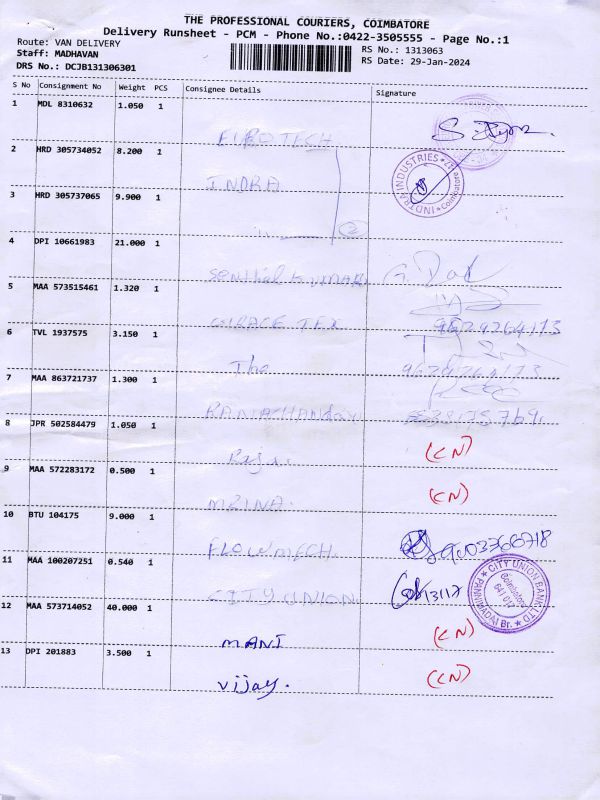 THE PROFESSIONAL COURIERS, COIMBATORE
Delivery Runsheet - PCM - Phone No.:0422-3505555 - Page No.:1
Route: VAN DELIVERY RS No.: 1313063
Staff: MADHAVAN RS Date: 29-Jan-2024
DRS No.: DCJB131306301
S No Consignment No Weight PCS Consignee Details Signature
1 MDL 8310632 1.050 1 EUROTECH
2 HRD 305734052 8.200 1 INDRA
INDTRA INDUSTRIES
3 HRD 305737065 9.900 1
4 DPI 10661983 21.000 1 Senthil kumar
5 MAA 573515461 1.320 1 TEX 9629264113
6 TVL 1937575 3.150 1 The
7 MAA 863721737 1.300 1
8 JPR 502584479 1.050 1 Raja. (CN)
9 MAA 572283172 0.500 1 (CN)
10 BTU 104175 9.000 1 FLOWMECH
11 MAA 100207251 0.540 1 CITY UNION
CITY UNION BANK LTD
Coimbatore
641 017
PANNIMADAI Br.
12 MAA 573714052 40.000 1 MANI (CN)
13 DPI 201883 3.500 1 Vijay. (CN)